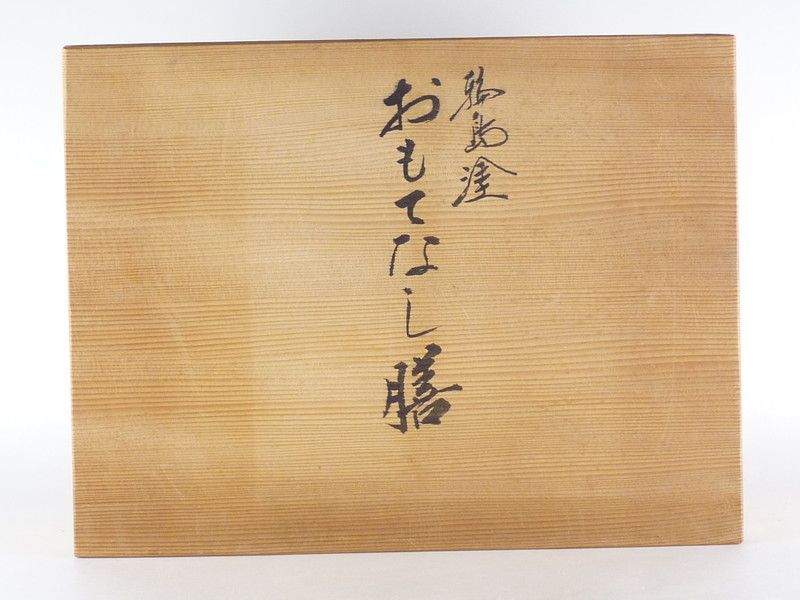 輪島塗
おもてなし膳